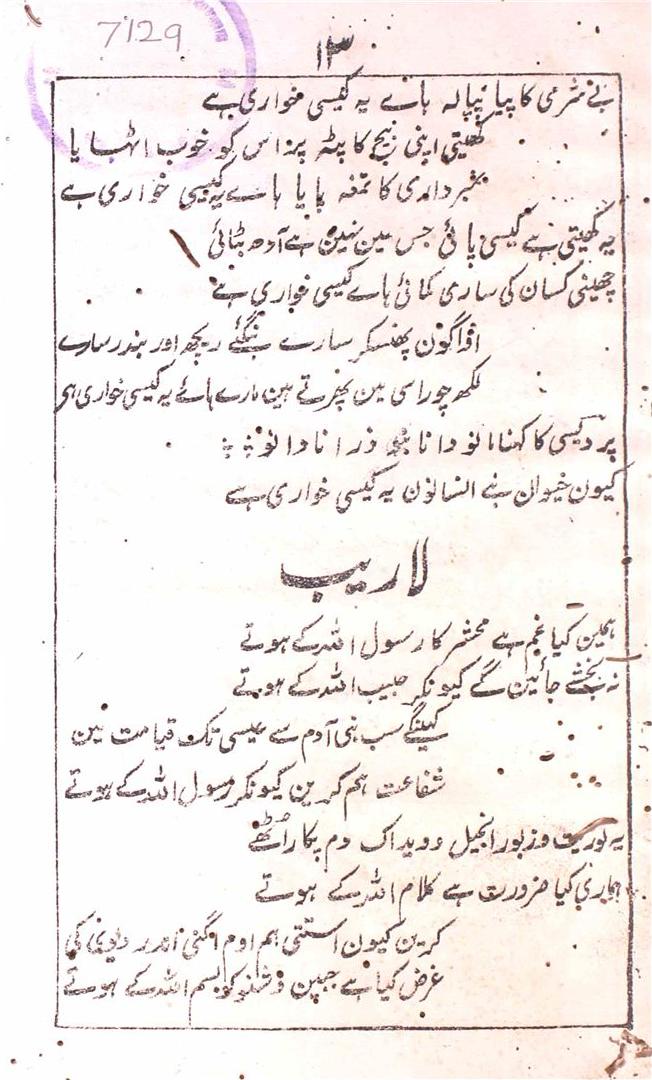 7129
۱۳
بے شرمی کا پیا پیالہ ہاے یہ کیسی خواری ہے
کھیتی اپنی بیچ کا پٹہ پر اس کو خوب اٹھایا
نمبرداری کا تمغہ پایا ہاے یہ کیسی خواری ہے
یہ کھیتی ہے کیسی پائی جس مین نہین ہے آدھ بٹائی
چھینی کسان کی ساری کمائی ہاے کیسی خواری ہے
آواگون پھنسکر سارے بنگئے ریچھ اور بندر سارے
لکھ چوراسی مین پھرتے ہین مارے ہائے یہ کیسی خواری ہی
پردیسی کا کہنا مانو دانا ہو ذرا نادانو
کیون حیوان بنے انسانون یہ کیسی خواری ہے
لاریب
ہمین کیا غم ہے محشر کا رسول اللہ کے ہوتے
نہ بخشے جائین گے کیونکر حبیب اللہ کے ہوتے
کہینگے سب بنی آدم سے عیسی تک قیامت مین
شفاعت ہم کرین کیونکر رسول اللہ کے ہوتے
یہ توریت و زبور انجیل و وید اک دم پکار اُٹھے
ہماری کیا ضرورت ہے کلام اللہ کے ہوتے
کرین کیون استتی ہم اوم اگنی اندر دیوی کی
غرض کیا ہے جپین وشنو کو بسم اللہ کے ہوتے